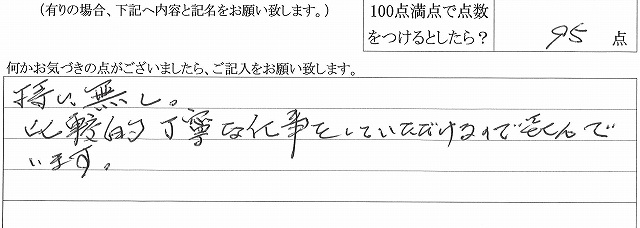 (有りの場合、下記へ内容と記名をお願い致します。)
100点満点で点数
をつけるとしたら？ 95 点
何かお気づきの点がございましたら、ご記入をお願い致します。
特に無し。
比較的丁寧な仕事をしていただけるので喜んで
います。